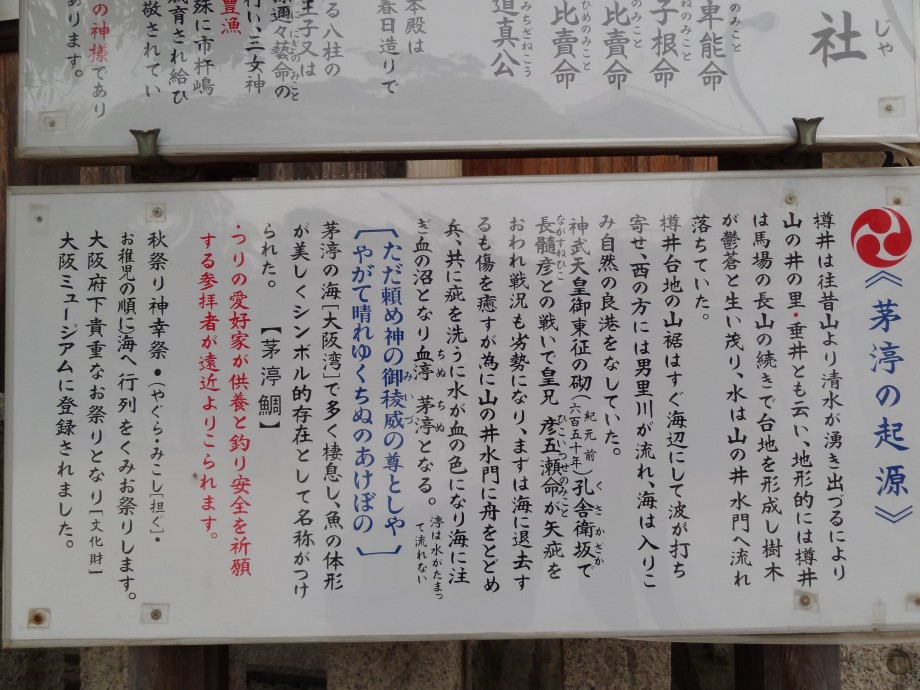 社
じゃ
車能命
のみこと
子根命
ねのみこと
比賣命
のみこと
比賣命
ひめのみこと
道真公
みちざねこう
本殿は
春日造りで
る八柱の
王子又は
邇々藝命の
ににぎのみこと
行い、三女神
豊漁
殊に市杵嶋
育され給ひ
敬されてい
の神様であり
あります。
《茅渟の起源》
樽井は往昔山より清水が湧き出づるにより
山の井の里・垂井とも云い、地形的には樽井
は馬場の長山の続きで台地を形成し樹木
が鬱蒼と生い茂り、水は山の井水門へ流れ
落ちていた。
樽井台地の山裾はすぐ海辺にして波が打ち
寄せ、西の方には男里川が流れ、海は入りこ
み自然の良港をなしていた。
神武天皇御東征の砌(紀元前六百五十年)孔舎衛坂で
くさかざか
長髓彦との戦いで皇兄 彦五瀬命が矢疵を
ながすねひこ ひこいつせのみこと
おわれ戦況も劣勢になり、ますは海に退去す
るも傷を癒すが為に山の井水門に舟をとどめ
兵、共に疵を洗うに水が血の色になり海に注
ぎ血の沼となり血渟 茅渟となる。渟は水がたまって流れない
ちぬ ちぬ
[ただ頼め神の御稜威の尊としや
みいづ
やがて晴れゆくちぬのあけぼの]
茅渟の海「大阪湾」で多く棲息し、魚の体形
が美しくシンボル的存在として名称がつけ
られた。 【茅渟鯛】
・つりの愛好家が供養と釣り安全を祈願
する参拝者が遠近よりこられます。
秋祭り神幸祭・(やぐら・みこし[担ぐ]・
お稚児の順に海へ行列をくみお祭りします。
大阪府下貴重なお祭りとなり[文化財]
大阪ミュージアムに登録されました。